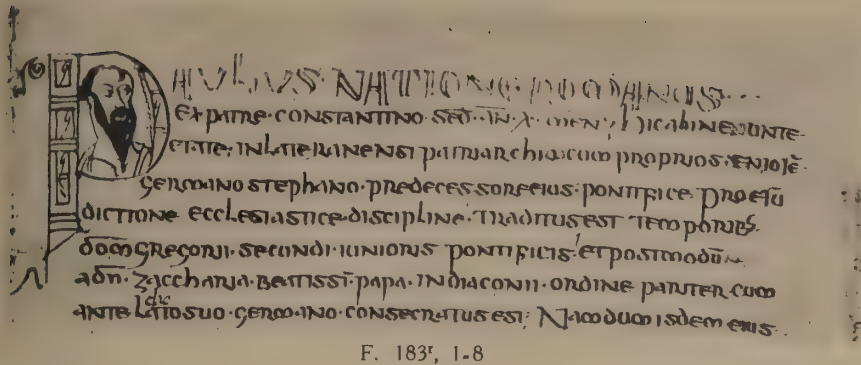 PAULUS·NATIONE·ROMANUS···
EX PATRE·CONSTANTINO·SED̄·AN̄·X·MEN·I· hIC AB INEUNTE·
ETATE·IN LATERANENSI PATRIARCHIO·CUM PROPRIO S·ENIORĒ·
GERMANO STEPHANO·PREDECESSORE EIUS·PONTIFICE PRO ERU
DICTIONE ECCLESIASTICE·DISCIPLINE·TRADITUS EST TEMPORIB;
DOM̄ GREGORII·SECUNDI·IUNIORIS PONTIFICIS·ET POSTMODŪ
A DN̄·ZACCHARIA·BEATISSĪ·PAPA·IN DIACONII·ORDINE PARITER CUM
ANTE LATO SUO·GERMANO·CONSECRATUS EST; NAM DUM ISDEM EIUS
F. 183ʳ, 1-8